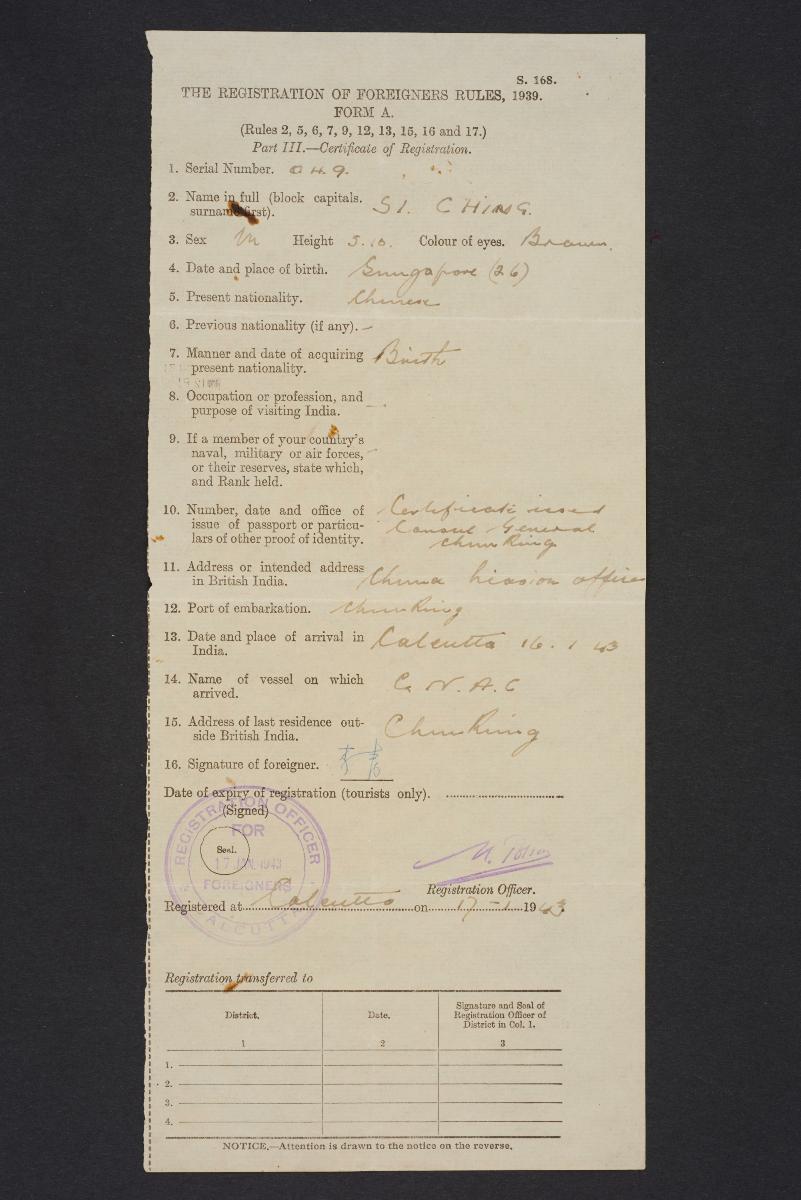 S. 168.
THE REGISTRATION OF FOREIGNERS RULES, 1939.
FORM A.
(Rules 2, 5, 6, 7, 9, 12, 13, 15, 16 and 17.)
Part III.—Certificate of Registration.
1. Serial Number.
2. Name in full (block capitals. SI. CHING.
surname first).
3. Sex M Height 5.10. Colour of eyes. Brown.
4. Date and place of birth. Singapore (26)
5. Present nationality. Chinese
6. Previous nationality (if any). —
7. Manner and date of acquiring Birth
present nationality.
8. Occupation or profession, and
purpose of visiting India. —
9. If a member of your country's
naval, military or air forces, —
or their reserves, state which,
and Rank held.
10. Number, date and office of Certificate issued
issue of passport or particu- Consul General
lars of other proof of identity. Chunking
11. Address or intended address China Mission office
in British India.
12. Port of embarkation. Chunking
13. Date and place of arrival in Calcutta 16. 1 43
India.
14. Name of vessel on which C. N. A. C
arrived.
15. Address of last residence out- Chunking
side British India.
16. Signature of foreigner.
Date of expiry of registration (tourists only). ..............................
(Signed)
REGISTRATION OFFICER
FOR
Seal.
17 JAN 1943
FOREIGNERS
CALCUTTA
Registration Officer.
Registered at Calcutta on 17-1 1943.
Registration transferred to
District. Date. Signature and Seal of
Registration Officer of
District in Col. 1.
1 2 3
1.
2.
3.
4.
NOTICE.—Attention is drawn to the notice on the reverse.